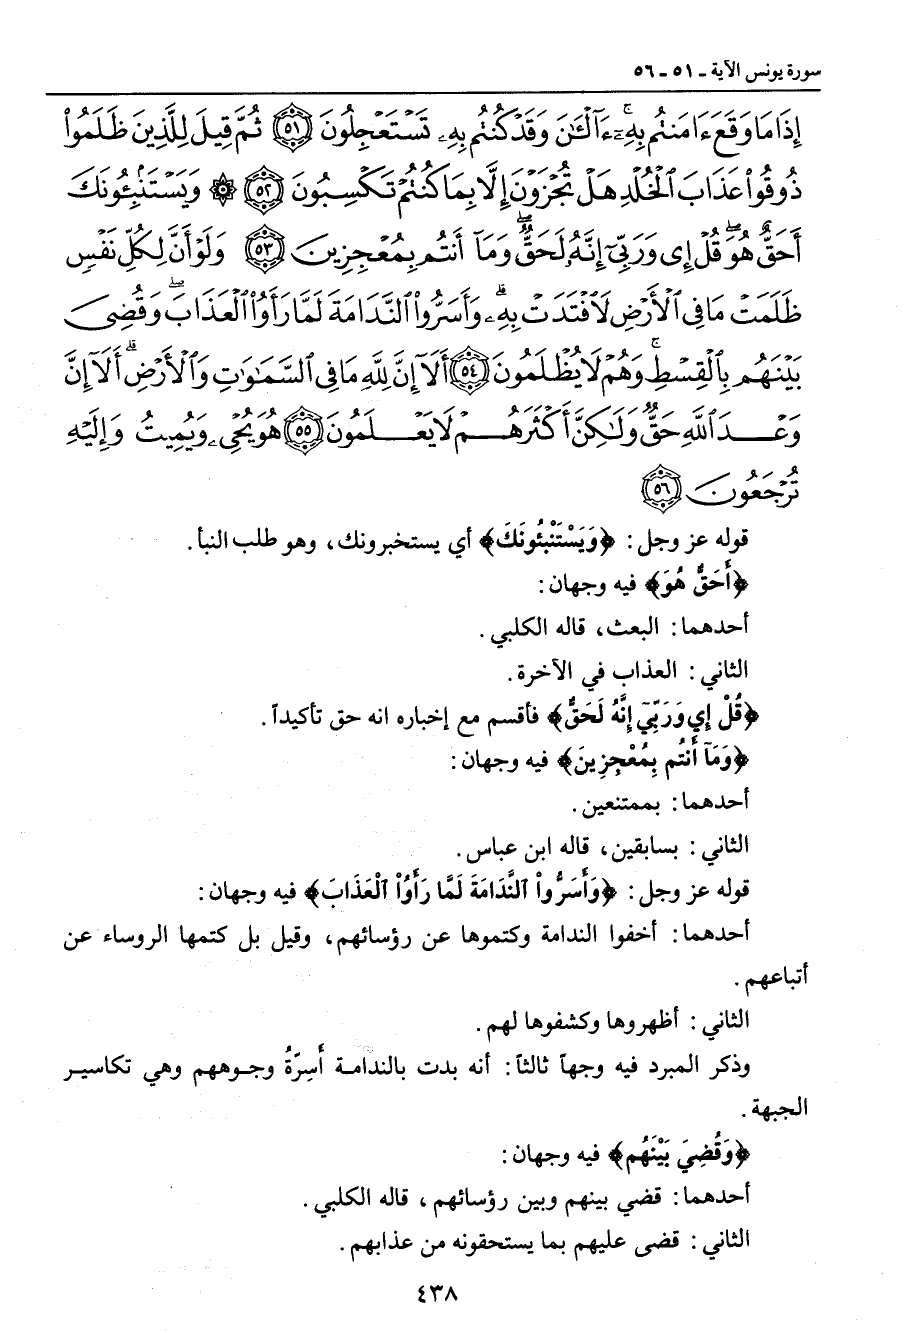 سورة يونس الآية ـ ٥١ ـ ٥٦
إِذَا مَا وَقَعَ ءَامَنتُم بِهِۦٓ ءَآلْـَٰٔنَ وَقَدْ كُنتُم بِهِۦ تَسْتَعْجِلُونَ ﴿٥١﴾ ثُمَّ قِيلَ لِلَّذِينَ ظَلَمُوا۟
ذُوقُوا۟ عَذَابَ ٱلْخُلْدِ هَلْ تُجْزَوْنَ إِلَّا بِمَا كُنتُمْ تَكْسِبُونَ ﴿٥٢﴾ ۞ وَيَسْتَنۢبِـُٔونَكَ
أَحَقٌّ هُوَ ۖ قُلْ إِى وَرَبِّىٓ إِنَّهُۥ لَحَقٌّ ۖ وَمَآ أَنتُم بِمُعْجِزِينَ ﴿٥٣﴾ وَلَوْ أَنَّ لِكُلِّ نَفْسٍ
ظَلَمَتْ مَا فِى ٱلْأَرْضِ لَٱفْتَدَتْ بِهِۦ ۗ وَأَسَرُّوا۟ ٱلنَّدَامَةَ لَمَّا رَأَوُا۟ ٱلْعَذَابَ ۖ وَقُضِىَ
بَيْنَهُم بِٱلْقِسْطِ ۚ وَهُمْ لَا يُظْلَمُونَ ﴿٥٤﴾ أَلَآ إِنَّ لِلَّهِ مَا فِى ٱلسَّمَٰوَٰتِ وَٱلْأَرْضِ ۗ أَلَآ إِنَّ
وَعْدَ ٱللَّهِ حَقٌّ وَلَٰكِنَّ أَكْثَرَهُمْ لَا يَعْلَمُونَ ﴿٥٥﴾ هُوَ يُحْىِۦ وَيُمِيتُ وَإِلَيْهِ
تُرْجَعُونَ ﴿٥٦﴾
قوله عز وجل: ﴿وَيَسْتَنْبِئُونَكَ﴾ أي يستخبرونك، وهو طلب النبأ.
﴿أَحَقٌّ هُوَ﴾ فيه وجهان:
أحدهما: البعث، قاله الكلبي.
الثاني: العذاب في الآخرة.
﴿قُلْ إِي وَرَبِّيٓ إِنَّهُ لَحَقٌّ﴾ فأقسم مع إخباره انه حق تأكيداً.
﴿وَمَآ أَنتُم بِمُعْجِزِينَ﴾ فيه وجهان:
أحدهما: بممتنعين.
الثاني: بسابقين، قاله ابن عباس.
قوله عز وجل: ﴿وَأَسَرُّواْ ٱلنَّدَامَةَ لَمَّا رَأَوُاْ ٱلْعَذَابَ﴾ فيه وجهان:
أحدهما: أخفوا الندامة وكتموها عن رؤسائهم، وقيل بل كتمها الروساء عن
أتباعهم.
الثاني: أظهروها وكشفوها لهم.
وذكر المبرد فيه وجهاً ثالثاً: أنه بدت بالندامة أَسِرّةُ وجوههم وهي تكاسير
الجبهة.
﴿وَقُضِيَ بَيْنَهُم﴾ فيه وجهان:
أحدهما: قضي بينهم وبين رؤسائهم، قاله الكلبي.
الثاني: قضى عليهم بما يستحقونه من عذابهم.
٤٣٨